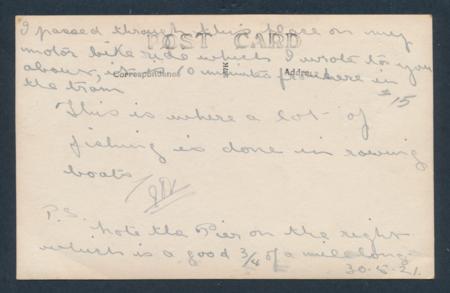 I passed through this place on my
POST CARD
motor bike ride which I wrote to you
about, it is 10 minutes from here in
Correspondence
Address
the tram
$15
This is where a lot of
fishing is done in rowing
boats
P.S.
note the Pier on the right
which is a good 3/4 of a mile long
30-5-21